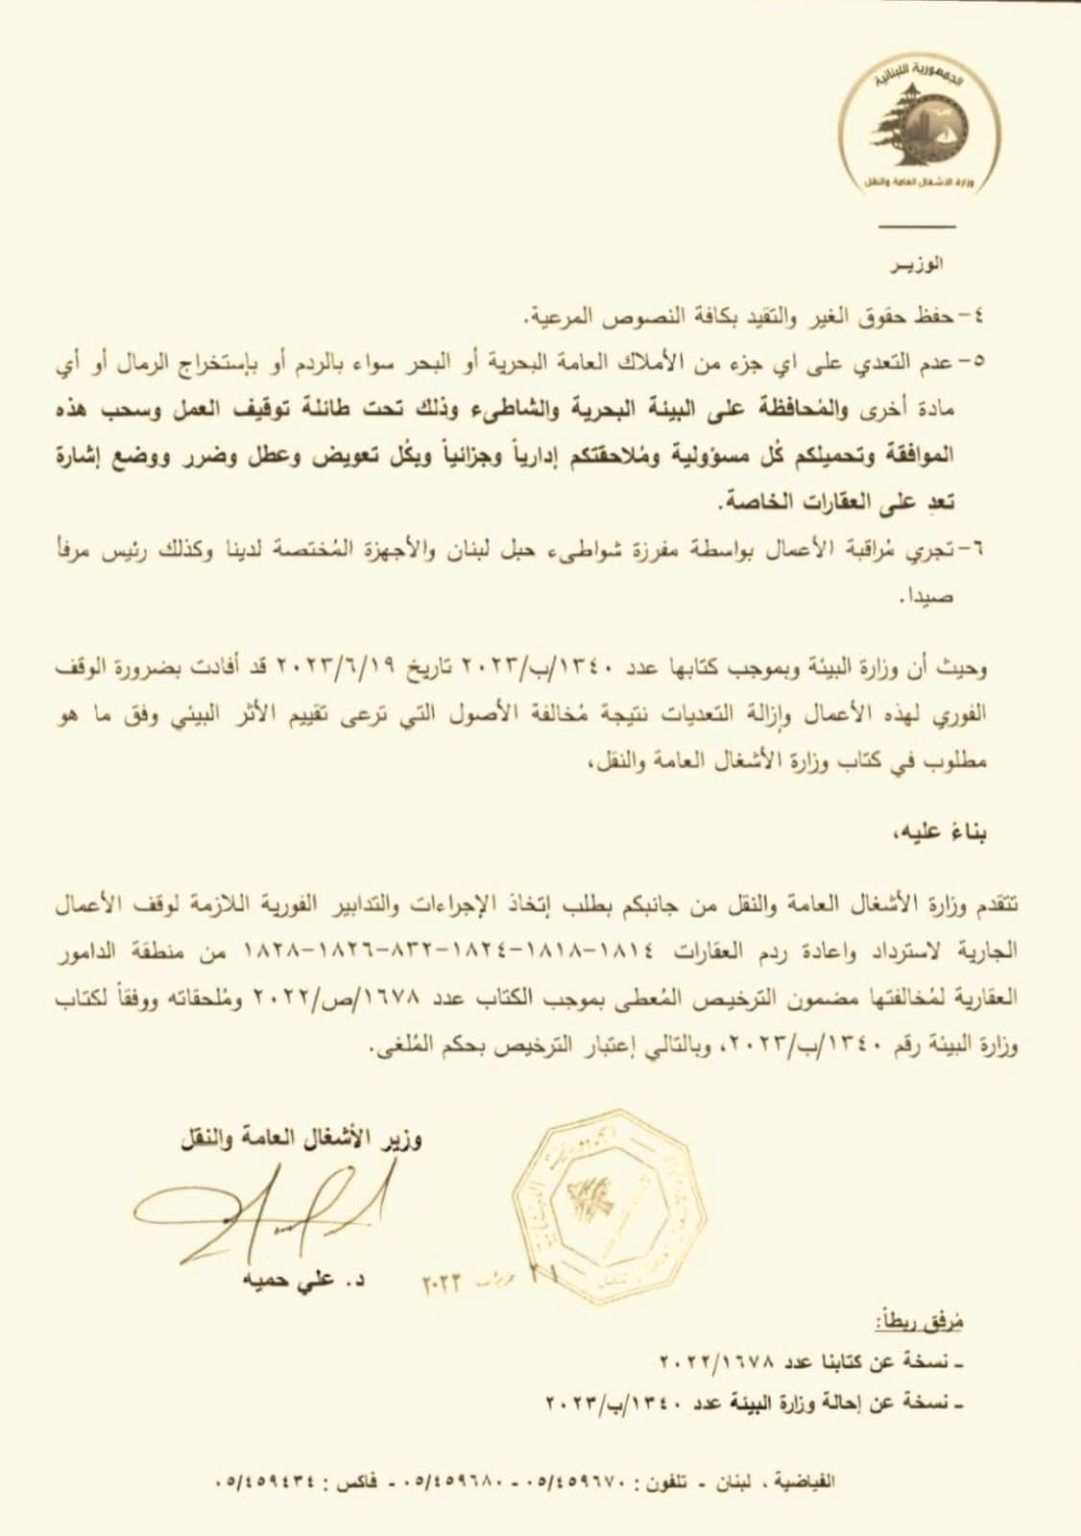 الجمهورية اللبنانية
وزارة الاشغال العامة والنقل
الوزيـر
٤- حفظ حقوق الغير والتقيد بكافة النصوص المرعية.
٥- عدم التعدي على اي جزء من الأملاك العامة البحرية أو البحر سواء بالردم أو بإستخراج الرمال أو أي
مادة أخرى والمُحافظة على البيئة البحرية والشاطىء وذلك تحت طائلة توقيف العمل وسحب هذه
الموافقة وتحميلكم كُل مسؤولية ومُلاحقتكم إدارياً وجزائياً وبكُل تعويض وعطل وضرر ووضع إشارة
تعدِ على العقارات الخاصة.
٦- تجري مُراقبة الأعمال بواسطة مفرزة شواطىء جبل لبنان والأجهزة المُختصة لدينا وكذلك رئيس مرفأ
صيدا.
وحيث أن وزارة البيئة وبموجب كتابها عدد ١٣٤٠/ب/٢٠٢٣ تاريخ ٢٠٢٣/٦/١٩ قد أفادت بضرورة الوقف
الفوري لهذه الأعمال وإزالة التعديات نتيجة مُخالفة الأصول التي ترعى تقييم الأثر البيئي وفق ما هو
مطلوب في كتاب وزارة الأشغال العامة والنقل،
بناءً عليه،
تتقدم وزارة الأشغال العامة والنقل من جانبكم بطلب إتخاذ الإجراءات والتدابير الفورية اللازمة لوقف الأعمال
الجارية لاسترداد واعادة ردم العقارات ١٨١٤-١٨١٨-١٨٢٤-٨٣٢-١٨٢٦-١٨٢٨ من منطقة الدامور
العقارية لمُخالفتها مضمون الترخيص المُعطى بموجب الكتاب عدد ١٦٧٨/ص/٢٠٢٢ ومُلحقاته ووفقاً لكتاب
وزارة البيئة رقم ١٣٤٠/ب/٢٠٢٣، وبالتالي إعتبار الترخيص بحكم المُلغى.
وزير الأشغال العامة والنقل
د. علي حميه
٢١ حزيران ٢٠٢٣
مُرفق ربطاً:
ـ نسخة عن كتابنا عدد ٢٠٢٢/١٦٧٨
ـ نسخة عن إحالة وزارة البيئة عدد ١٣٤٠/ب/٢٠٢٣
الفياضية ، لبنان - تلفون : ٠٥/٤٥٩٦٧٠ - ٠٥/٤٥٩٦٨٠ - فاكس : ٠٥/٤٥٩٤٣٤